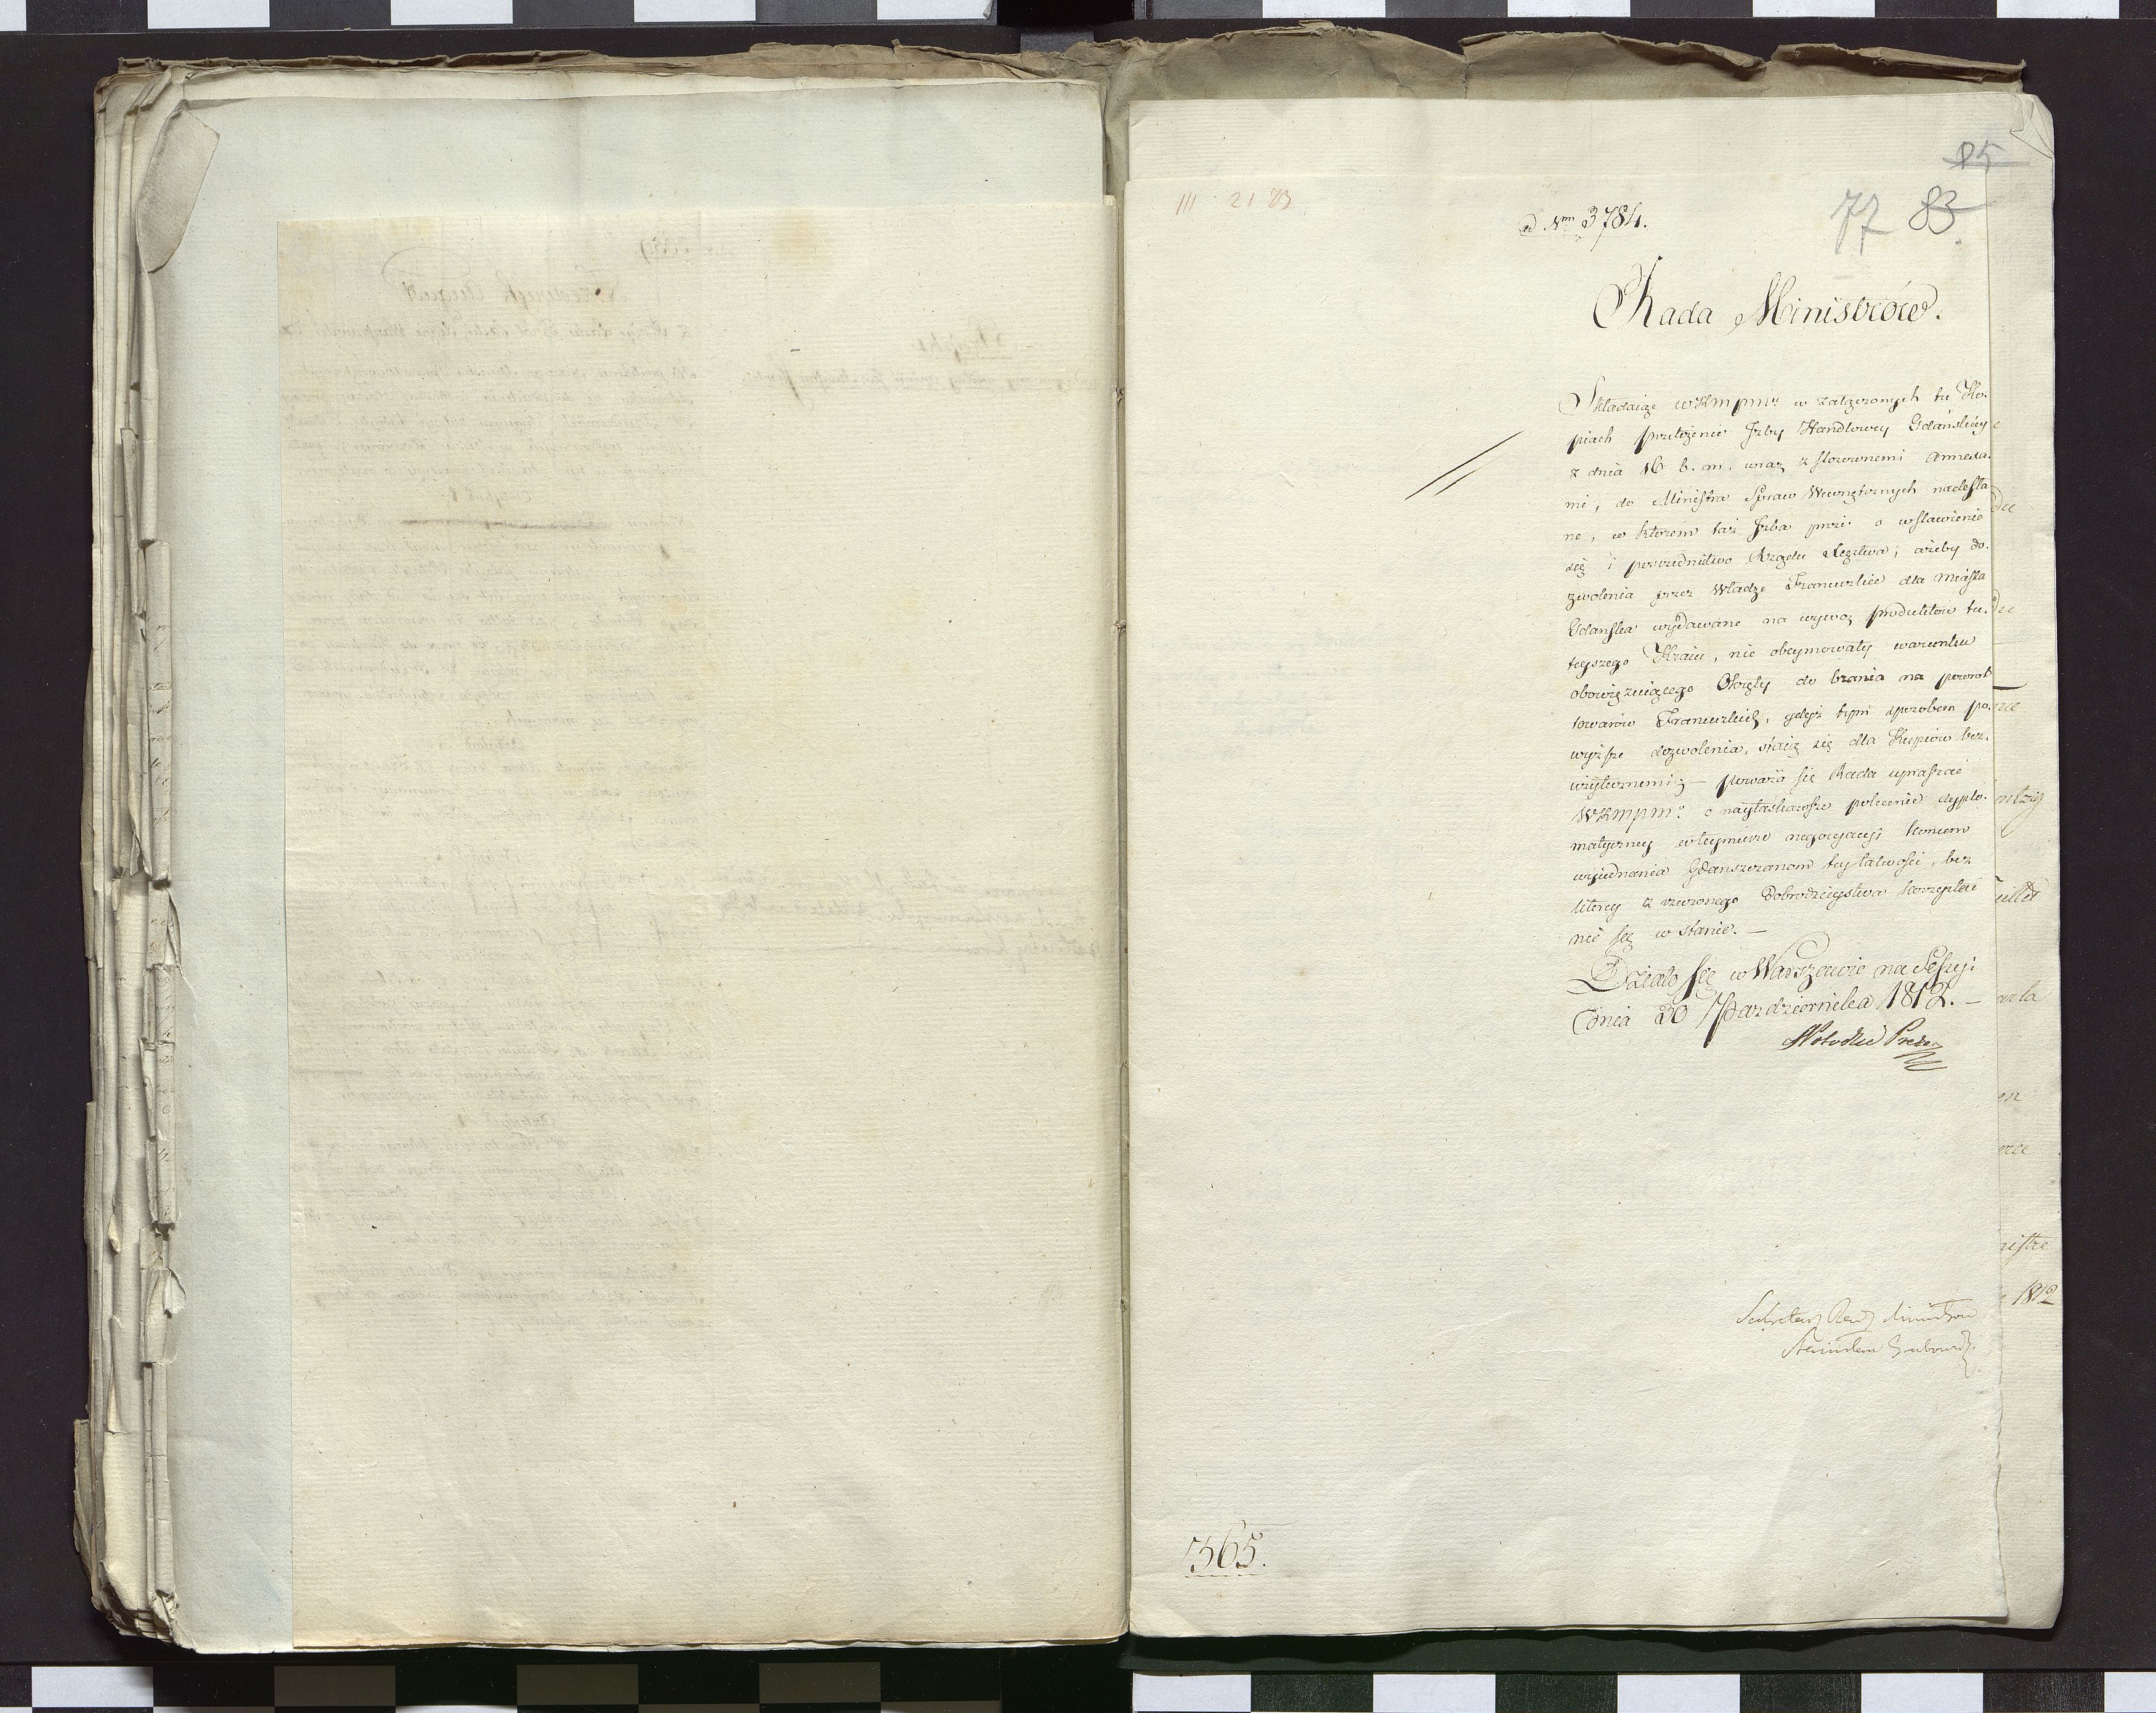 85
III 21 83
ad Nm 3784.
77 83
Rada Ministrów.
Składaiąc WKMPMu w załączonych tu Ko-
piach przełożenie Izby Handlowey Gdańskiey
z dnia 16 b. m. wraz z stosownemi annexa-
mi, do Ministra Spraw Wewnętrznych nadesła
ne, w którem taż Izba prosi o wstawienie
się i posrednictwo Rządu Xięztwa, ażeby do-
zwolenia przez Władze Francuzkie dla miasta
Gdańska wydawane na wywóz produktów tu-
teyszego Kraiu, nie obeymowały warunku
obowięzuiącego Okręty do brania na powrót
towarów Francuzkich, gdyż tym sposobem po-
wyższe dozwolenia, staią się dla Kupców bez-
użytecznemi; — poważa się Rada upraszać
WKMPMu o nayłaskawsze polecenie dyplo-
matyczney w teymierze negocyacyi końcem
wyiednania Gdańszczanom tey łatwości, bez
którey z rzeczonego Dobrodzieystwa korzystać
nie są w stanie. —
Działo się w Warszawie na Sessyi
dnia 20 Października 1812. —
Prezes
Sekretarz Rady Ministrów
Stanisław
1812
565.